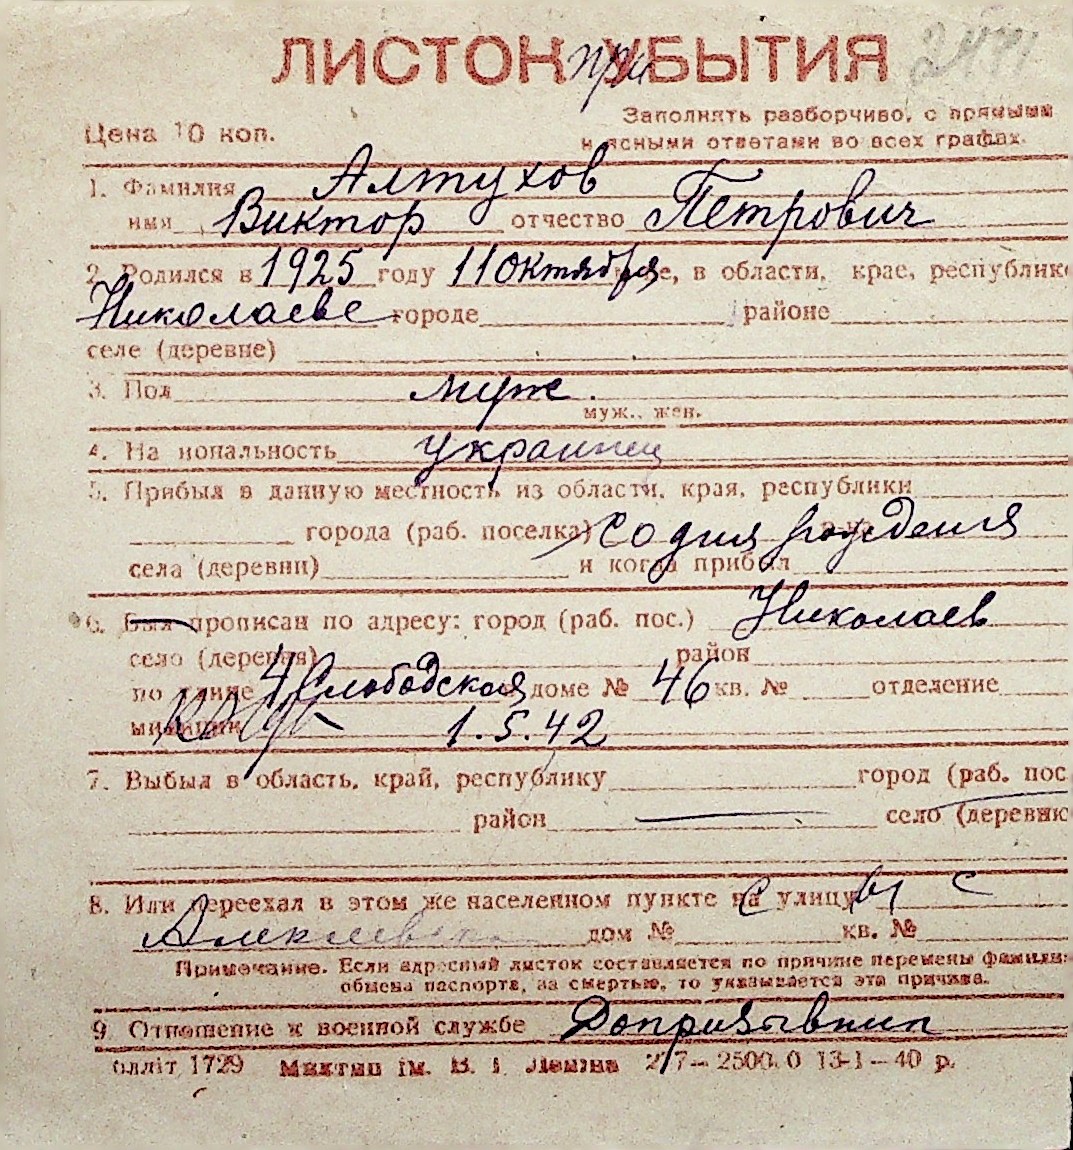 ЛИСТОК при УБЫТИЯ
Цена 10 коп.
Заполнять разборчиво, с прямыми
и ясными ответами во всех графах.
1. Фамилия Алтухов
имя Виктор отчество Петрович
2. Родился в 1925 году 11 октября, в области, крае, республике
Николаеве городе районе
селе (деревне)
3. Пол муж.
муж., жен.
4. На иональность украинец
5. Прибыл в данную местность из области, края, республики
города (раб. поселка) со дня рождения
села (деревни) и когда прибыл
6. Был прописан по адресу: город (раб. пос.) Николаев
село (деревня) район
по улице 4 Слободская доме № 46 кв. № отделение
милиции 1.5.42
7. Выбыл в область, край, республику город (раб. пос
район село (деревню
8. Или переехал в этом же населенном пункте с улицы с
дом № кв. №
Примечание. Если адресный листок составляется по причине перемены фамилии
обмена паспорта, за смертью, то указывается эта причина.
9. Отношение к военной службе Допризывник
блліт 1729 ім. В. І. Леніна 2500.0 13-1—40 р.